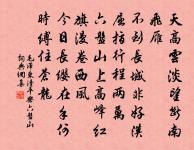 天高雲淡望斷南
飛雁
不到長城非好漢
屈指行程萬
六盤山上高峰紅
旗漫卷西風
今日長纓在手何
時縛住蒼龍
毛澤東清平樂六盤山